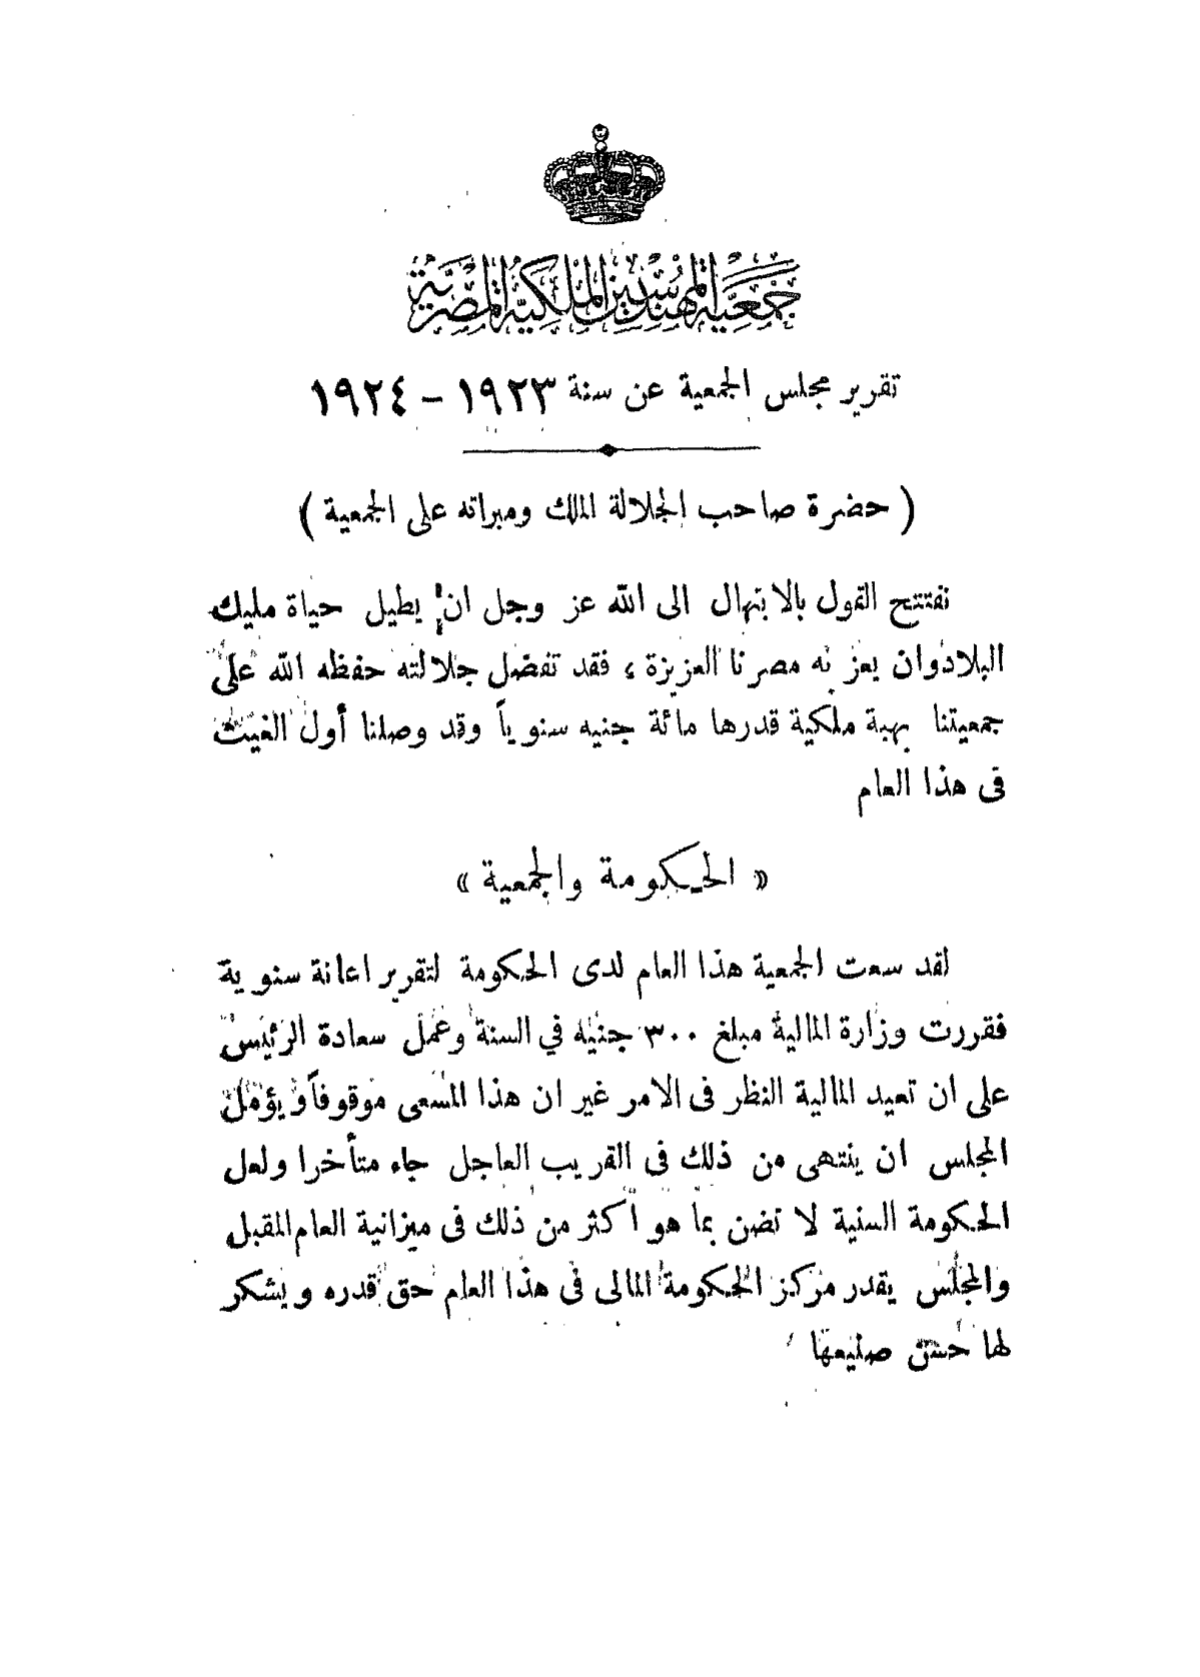 جمعية المهندسين الملكية المصرية
تقرير مجلس الجمعية عن سنة ١٩٢٣ – ١٩٢٤
( حضرة صاحب الجلالة الملك ومبراته على الجمعية )
نفتتح القول بالابتهال الى الله عز وجل ان يطيل حياة مليك
البلاد وان يعز به مصرنا العزيزة ، فقد تفضل جلالته حفظه الله على
جمعيتنا بهبة ملكية قدرها مائة جنيه سنوياً وقد وصلنا أول الغيث
فى هذا العام
« الحكومة والجمعية »
لقد سعت الجمعية هذا العام لدى الحكومة لتقرير اعانة سنوية
فقررت وزارة المالية مبلغ ٣٠٠ جنيه في السنة وعمل سعادة الرئيس
على ان تعيد المالية النظر فى الامر غير ان هذا المسعى موقوفاً ويؤمل
المجلس ان ينتهى من ذلك فى القريب العاجل جاء متأخرا ولعل
الحكومة السنية لا تضن بما هو أكثر من ذلك فى ميزانية العام المقبل
والمجلس يقدر مركز الحكومة المالى فى هذا العام حق قدره ويشكر
لها حسن صنيعها